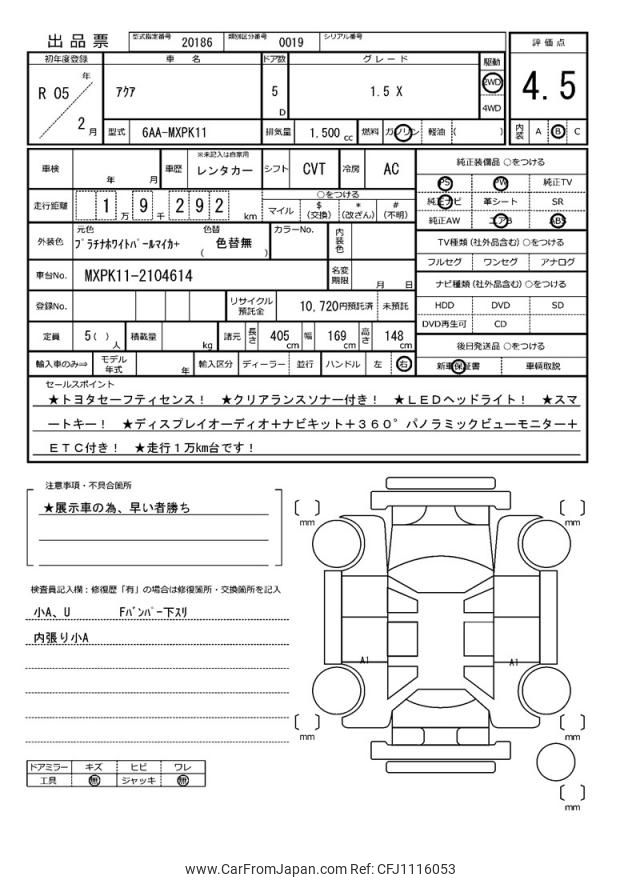 出品票 型式指定番号 20186 類別区分番号 0019 シリアル番号
評価点
4.5
内装 A B C
初年度登録 車名 ドア数 グレード 駆動
R 05 年 2 月
アクア 5 D 1.5 X 2WD 4WD
型式 6AA-MXPK11 排気量 1.500 cc 燃料 ガソリン 軽油 ( )
車検 年 月 車歴 ※未記入は自家用 レンタカー シフト CVT 冷房 AC
走行距離 1 万 9 千 2 9 2 km
○をつける
マイル $ (交換) * (改ざん) # (不明)
外装色 元色 プラチナホワイトパールマイカ+ 色替 ( 色替無 ) カラーNo. 内装色
車台No. MXPK11-2104614 名変期限 月 日
登録No. リサイクル預託金 10,720円預託済 未預託
定員 5 ( ) 人 積載量 kg 諸元 長さ 405 cm 幅 169 cm 高さ 148 cm
輸入車のみ⇒ モデル年式 年 輸入区分 ディーラー 並行 ハンドル 左 右
純正装備品 ○をつける
PS PW 純正TV
純正ナビ 革シート SR
純正AW エアB ABS
TV種類 (社外品含む) ○をつける
フルセグ ワンセグ アナログ
ナビ種類 (社外品含む) ○をつける
HDD DVD SD
DVD再生可 CD
後日発送品 ○をつける
新車保証書 車輌取説
セールスポイント
★トヨタセーフティセンス! ★クリアランスソナー付き! ★LEDヘッドライト! ★スマ
ートキー! ★ディスプレイオーディオ+ナビキット+360°パノラミックビューモニター+
ETC付き! ★走行1万km台です!
注意事項・不具合箇所
★展示車の為、早い者勝ち
検査員記入欄:修復歴「有」の場合は修復箇所・交換箇所を記入
小A、U Fバンパー下スリ
内張り小A
ドアミラー キズ ヒビ ワレ
工具 無 ジャッキ 無
mm
mm
A1
A1
mm
mm
mm
www.CarFromJapan.com Ref: CFJ1116053